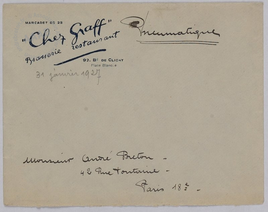 MARCADET 20 22
"Chez Graff"
Brasserie Restaurant
62. Bd DE CLICHY
Place Blanche
Pneumatique
31 janvier 1927
Monsieur André Breton
42 Rue Fontaine
Paris 18e